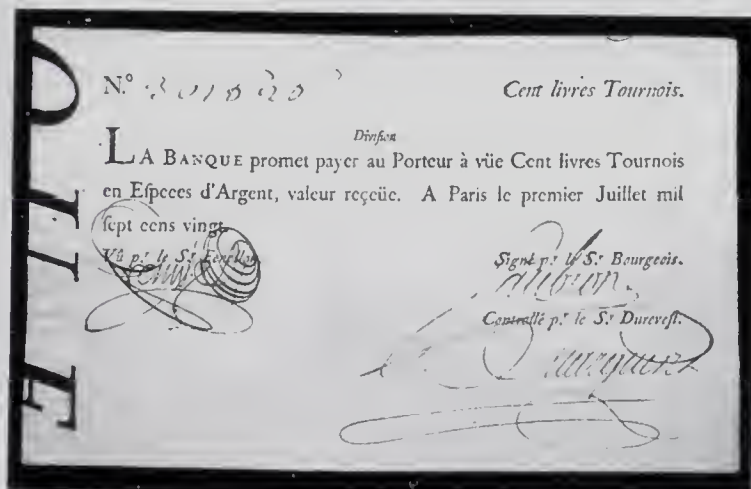 N.º Cent livres Tournois.
Division
LA BANQUE promet payer au Porteur à vüe Cent livres Tournois
en Eſpeces d'Argent, valeur reçeüe. A Paris le premier Juillet mil
ſept cens vingt.
Vû p.r le S.r Signé p.r le S.r Bourgeois.
Controllé p.r le S.r Dureveſt.